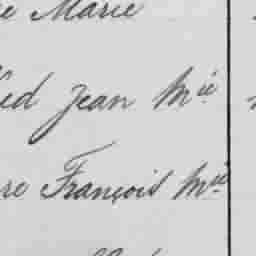 Marie
Jean Mie
François Mie